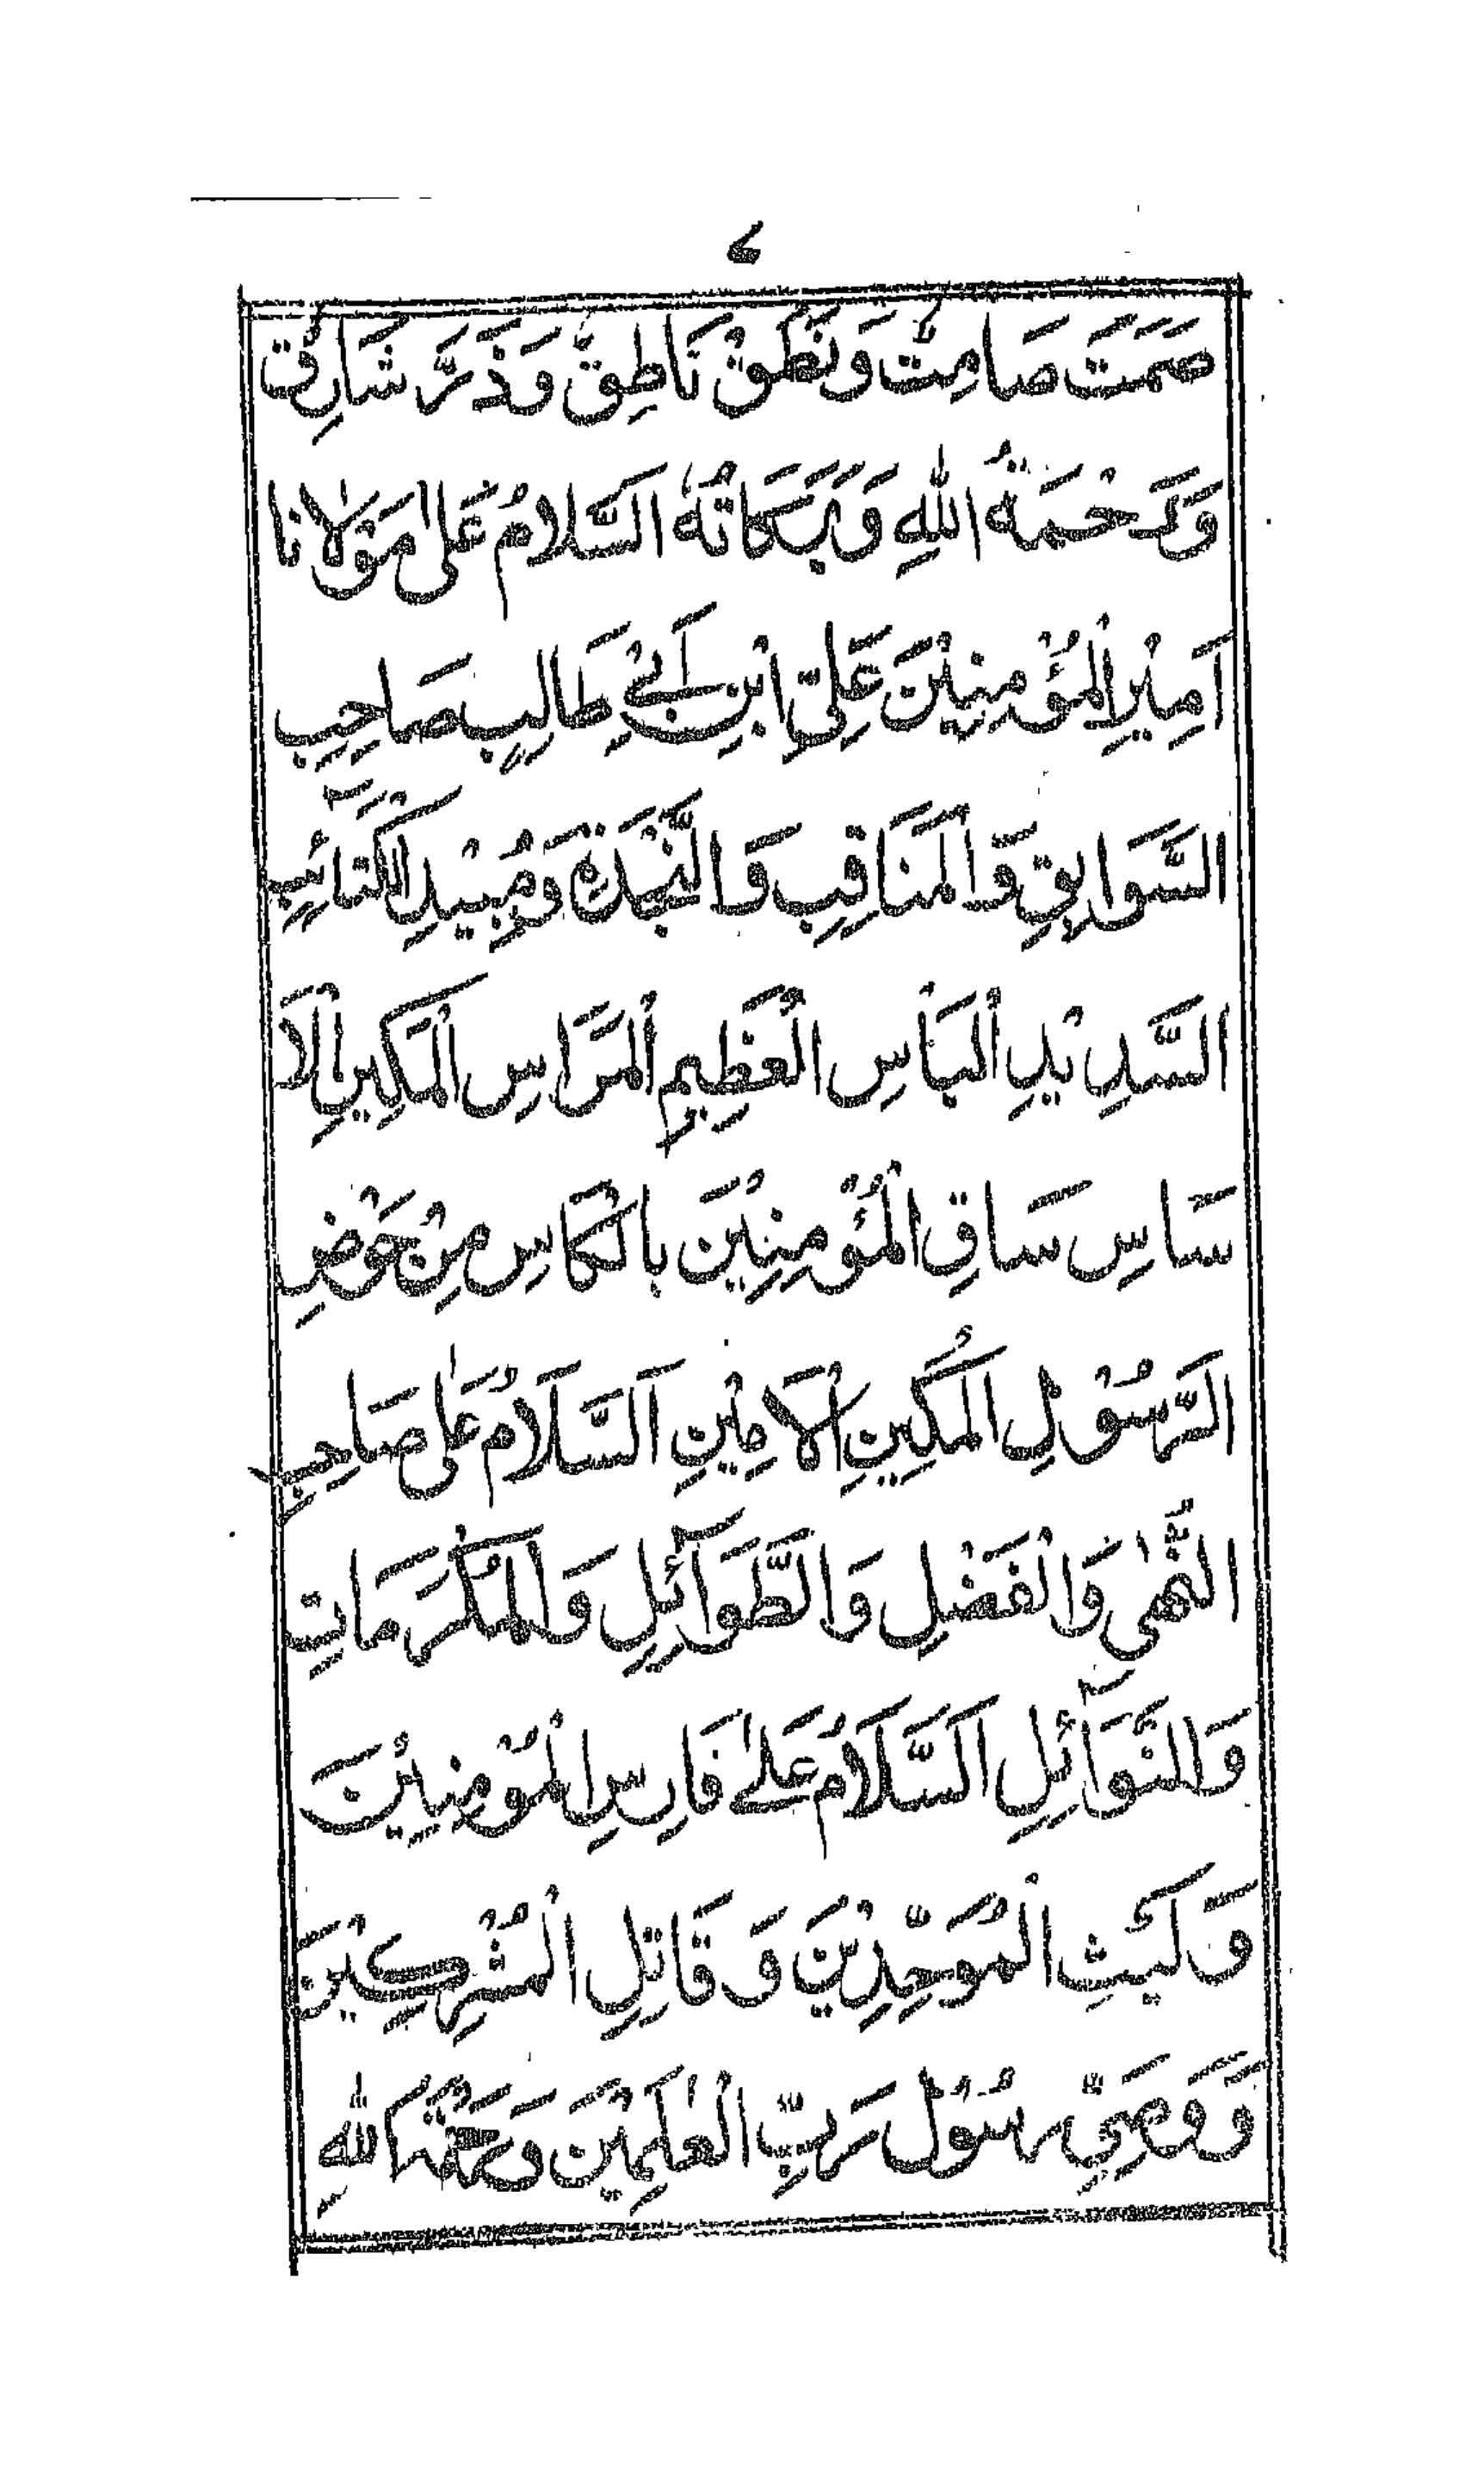 ۷
صَمَتَ صَامِتٌ وَنَطَقَ نَاطِقٌ وَذَرَّ شَارِقٌ
وَرَحْمَةُ اللهِ وَبَرَكَاتُهٗ اَلسَّلَامُ عَلٰى مَوْلَانَا
اَمِيْرِ الْمُؤْمِنِيْنَ عَلِيِّ ابْنِ اَبِيْ طَالِبٍ صَاحِبِ
السَّوَابِقِ وَالْمَنَاقِبِ وَالنَّجْدَةِ وَمُبِيْدِ الْكَتَآئِبِ
الشَّدِيْدِ الْبَأْسِ الْعَظِيْمِ الْمَرَاسِ الْمَكِيْنِ الْاَ
سَاسِ سَاقِ الْمُؤْمِنِيْنَ بِالْكَاْسِ مِنْ حَوْضِ
الرَّسُوْلِ الْمَكِيْنِ الْاَمِيْنِ اَلسَّلَامُ عَلٰى صَاحِبِ
النُّهٰى وَالْفَضْلِ وَالطَّوَآئِلِ وَالْمَكْرُمَاتِ
وَالنَّوَآئِلِ اَلسَّلَامُ عَلٰى فَارِسِ الْمُؤْمِنِيْنَ
وَلَيْثِ الْمُوَحِّدِيْنَ وَقَاتِلِ الْمُشْرِكِيْنَ
وَوَصِيِّ رَسُوْلِ رَبِّ الْعٰلَمِيْنَ وَرَحْمَةُ اللهِ